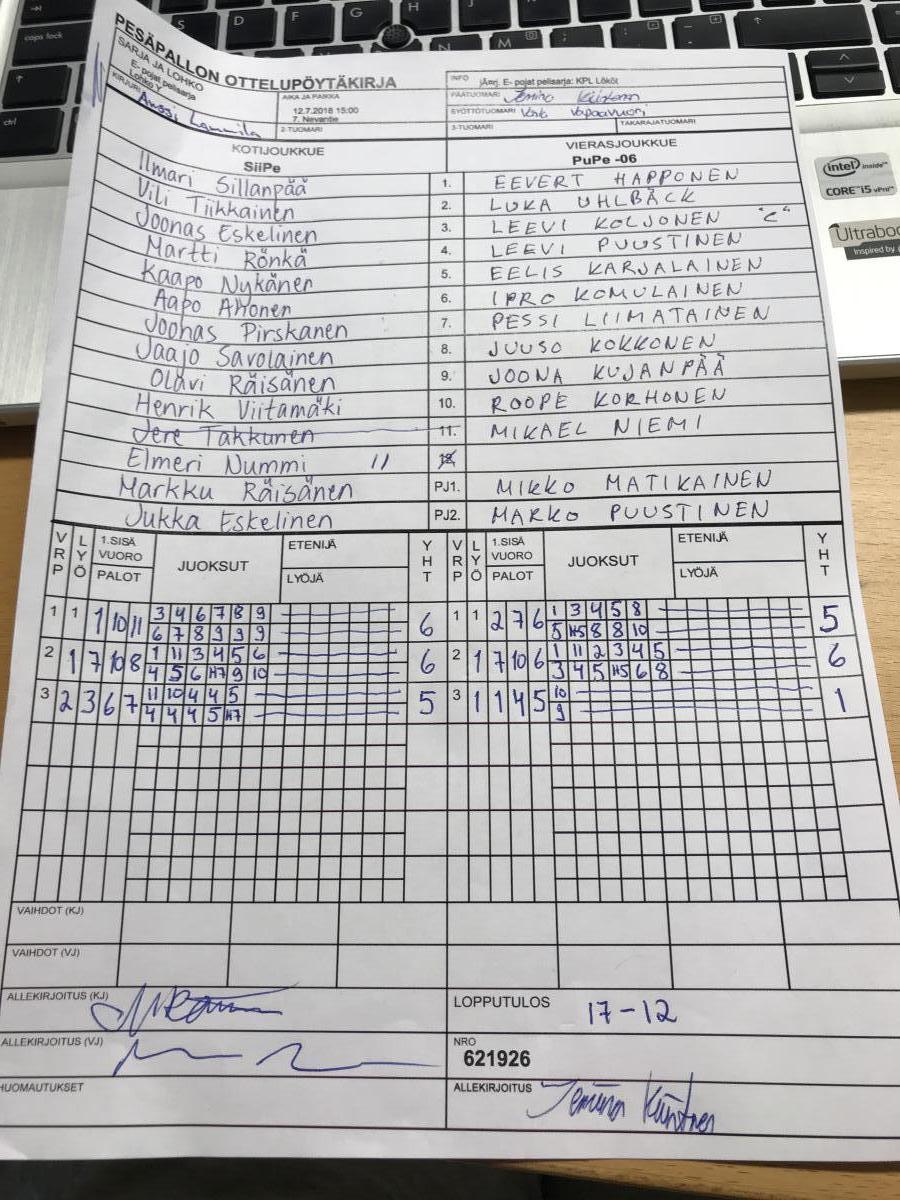 PESÄPALLON OTTELUPÖYTÄKIRJA
SARJA JA LOHKO
E- pojat pelisarja
Lohko Y
KIRJURI Anssi Lammila
AIKA JA PAIKKA
12.7.2018 15:00
7. Nevantie
2-TUOMARI
INFO jÄrrj. E- pojat pelisarja: KPL Lököt
PÄÄTUOMARI
SYÖTTÖTUOMARI
3-TUOMARI TAKARAJATUOMARI
KOTIJOUKKUE VIERASJOUKKUE
SiiPe PuPe -06
Ilmari Sillanpää 1. EEVERT HAPPONEN
Vili Tiikkainen 2. LUKA UHLBÄCK
Joonas Eskelinen 3. LEEVI KOLJONEN "C"
Martti Rönkä 4. LEEVI PUUSTINEN
Kaapo Nykänen 5. EELIS KARJALAINEN
Aapo Ahonen 6. IPRO KOMULAINEN
Joohas Pirskanen 7. PESSI LIIMATAINEN
Jaajo Savolainen 8. JUUSO KOKKONEN
Olavi Räisänen 9. JOONA KUJANPÄÄ
Henrik Viitamäki 10. ROOPE KORHONEN
Jere Takkunen 11. MIKAEL NIEMI
Elmeri Nummi 11 12.
Markku Räisänen PJ1. MIKKO MATIKAINEN
Jukka Eskelinen PJ2. MARKO PUUSTINEN
VRP LYÖ 1.SISÄ VUORO PALOT JUOKSUT ETENIJÄ LYÖJÄ YHT VRP LYÖ 1.SISÄ VUORO PALOT JUOKSUT ETENIJÄ LYÖJÄ YHT
1 1 1 10 11 3 4 6 7 8 9 6 1 1 2 7 6 1 3 4 5 8 5
6 7 8 9 9 9 5 H5 8 8 10
2 1 7 10 8 1 11 3 4 5 6 6 2 1 7 10 6 1 11 2 3 4 5 6
4 5 6 H7 9 10 3 4 5 H5 6 8
3 2 3 6 7 11 10 4 4 5 5 3 1 1 4 5 10 1
4 4 4 5 H7 9
VAIHDOT (KJ)
VAIHDOT (VJ)
ALLEKIRJOITUS (KJ)
LOPPUTULOS 17-12
ALLEKIRJOITUS (VJ)
NRO
621926
HUOMAUTUKSET
ALLEKIRJOITUS
caps lock
ctrl
S D F G H
N M
intel inside™
CORE™ i5 vPro™
Ultraboo
Inspired by